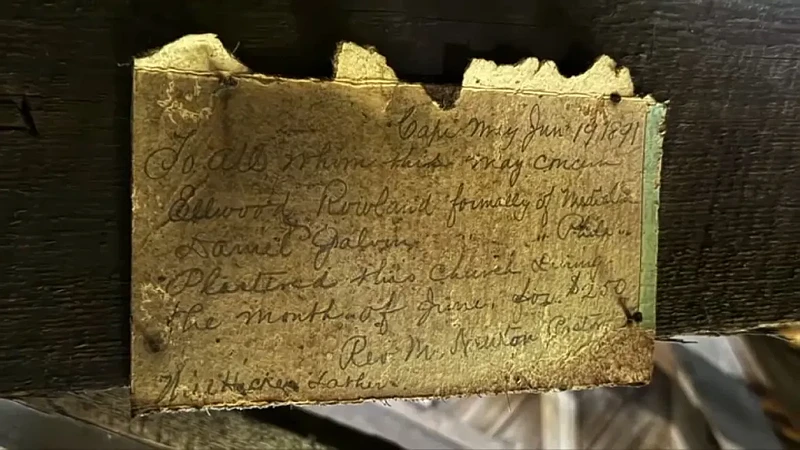 Cape May Jun 19 1891
To All whom this may concern
Ellwood Rowland formally of
Daniel Galvin " Phila "
Plastered this Church During
the month of June, for $250
Rev. M. Newton Pastor
Will Hacker Lather